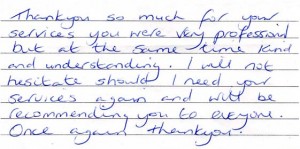 Thankyou so much for your
services you were very professional
but at the same time kind
and understanding. I will not
hesitate should I need your
services again and will be
recommending you to everyone.
Once again thankyou.